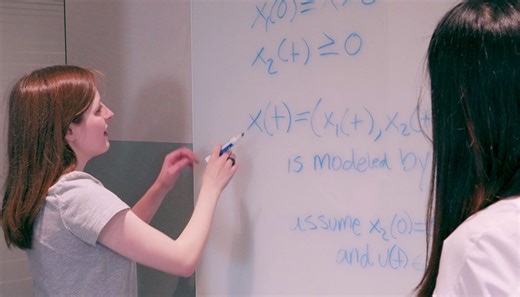 x₁(0) =
x₂(t) ≥ 0
x(t) = (x₁(t), x₂(t
is modeled by
assume x₂(0) =
and u(t) ∈